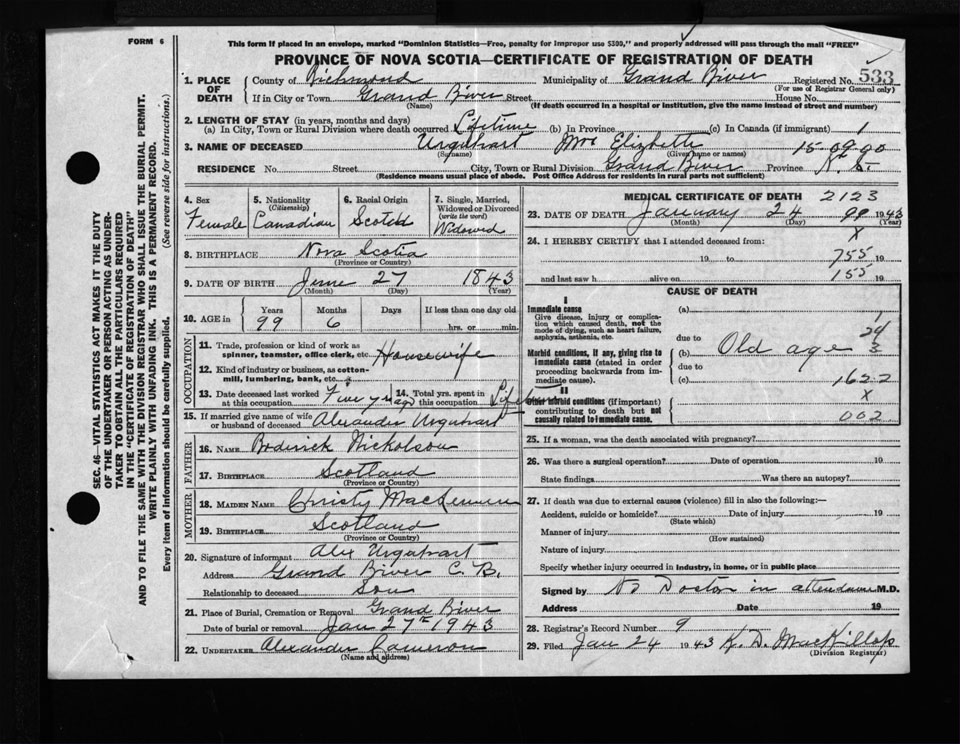 FORM 6
This form if placed in an envelope, marked "Dominion Statistics—Free, penalty for improper use $300," and properly addressed will pass through the mail "FREE"
PROVINCE OF NOVA SCOTIA—CERTIFICATE OF REGISTRATION OF DEATH
1. PLACE OF DEATH
County of Richmond Municipality of Grand River Registered No. 533
(For use of Registrar General only)
If in City or Town Grand River Street House No.
(Name) (If death occurred in a hospital or institution, give the name instead of street and number)
2. LENGTH OF STAY (in years, months and days)
(a) In City, Town or Rural Division where death occurred Lifetime (b) In Province (c) In Canada (if immigrant) 1
3. NAME OF DECEASED Urquhart Mrs Elizbeth 15-09-90
(Surname) (Given name or names)
RESIDENCE No. Street City, Town or Rural Division Grand River Province N. S.
(Residence means usual place of abode. Post Office Address for residents in rural parts not sufficient)
4. Sex Female
5. Nationality (Citizenship) Canadian
6. Racial Origin Scotch
7. Single, Married, Widowed or Divorced (write the word) Widowed
8. BIRTHPLACE Nova Scotia
(Province or Country)
9. DATE OF BIRTH June 27 1843
(Month) (Day) (Year)
10. AGE in Years Months Days If less than one day old
99 6 hrs. or min.
OCCUPATION
11. Trade, profession or kind of work as spinner, teamster, office clerk, etc. Housewife
12. Kind of industry or business, as cotton-mill, lumbering, bank, etc.
13. Date deceased last worked at this occupation Five yrs ago
14. Total yrs. spent in this occupation Life
15. If married give name of wife or husband of deceased Alexander Urquhart
FATHER
16. NAME Roderick Nickolson
17. BIRTHPLACE Scotland
(Province or Country)
MOTHER
18. MAIDEN NAME Christy
19. BIRTHPLACE Scotland
(Province or Country)
20. Signature of informant Alex Urquhart
Address Grand River C. B.
Relationship to deceased Son
21. Place of Burial, Cremation or Removal Grand River
Date of burial or removal Jan 27th 1943
22. UNDERTAKER Alexander Cameron
(Name and address)
MEDICAL CERTIFICATE OF DEATH 2123
23. DATE OF DEATH January 24 99 1943
(Month) (Day)
24. I HEREBY CERTIFY that I attended deceased from: X
19 to 755 19
and last saw h alive on 155 19
CAUSE OF DEATH
I
Immediate cause
Give disease, injury or complication which caused death, not the mode of dying, such as heart failure, asphyxia, asthenia, etc.
(a) 1
due to 24
Morbid conditions, if any, giving rise to immediate cause (stated in order proceeding backwards from immediate cause).
(b) Old age 3
due to
(c) 1622
II
Other morbid conditions (if important) contributing to death but not causally related to immediate cause.
X
002
25. If a woman, was the death associated with pregnancy?
26. Was there a surgical operation? Date of operation 19
State findings Was there an autopsy?
27. If death was due to external causes (violence) fill in also the following:—
Accident, suicide or homicide? Date of injury 19
(State which)
Manner of injury
(How sustained)
Nature of injury
Specify whether injury occurred in industry, in home, or in public place
Signed by No Doctor in attendance M.D.
Address Date 19
28. Registrar's Record Number 9
29. Filed Jan 24 1943 K. D. MacKillop
(Division Registrar)
SEC. 46—VITAL STATISTICS ACT MAKES IT THE DUTY
OF THE UNDERTAKER OR PERSON ACTING AS UNDER-
TAKER TO OBTAIN ALL THE PARTICULARS REQUIRED
IN THE "CERTIFICATE OF REGISTRATION OF DEATH"
AND TO FILE THE SAME WITH THE DIVISION REGISTRAR WHO SHALL ISSUE THE BURIAL PERMIT.
WRITE PLAINLY WITH UNFADING INK. THIS IS A PERMANENT RECORD.
Every item of information should be carefully supplied. (See reverse side for instructions.)